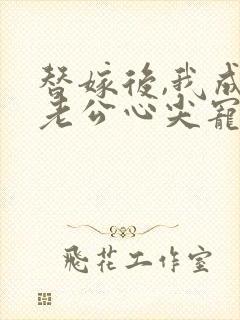 替嫁後,我成
老公心尖寵
飛花工作室